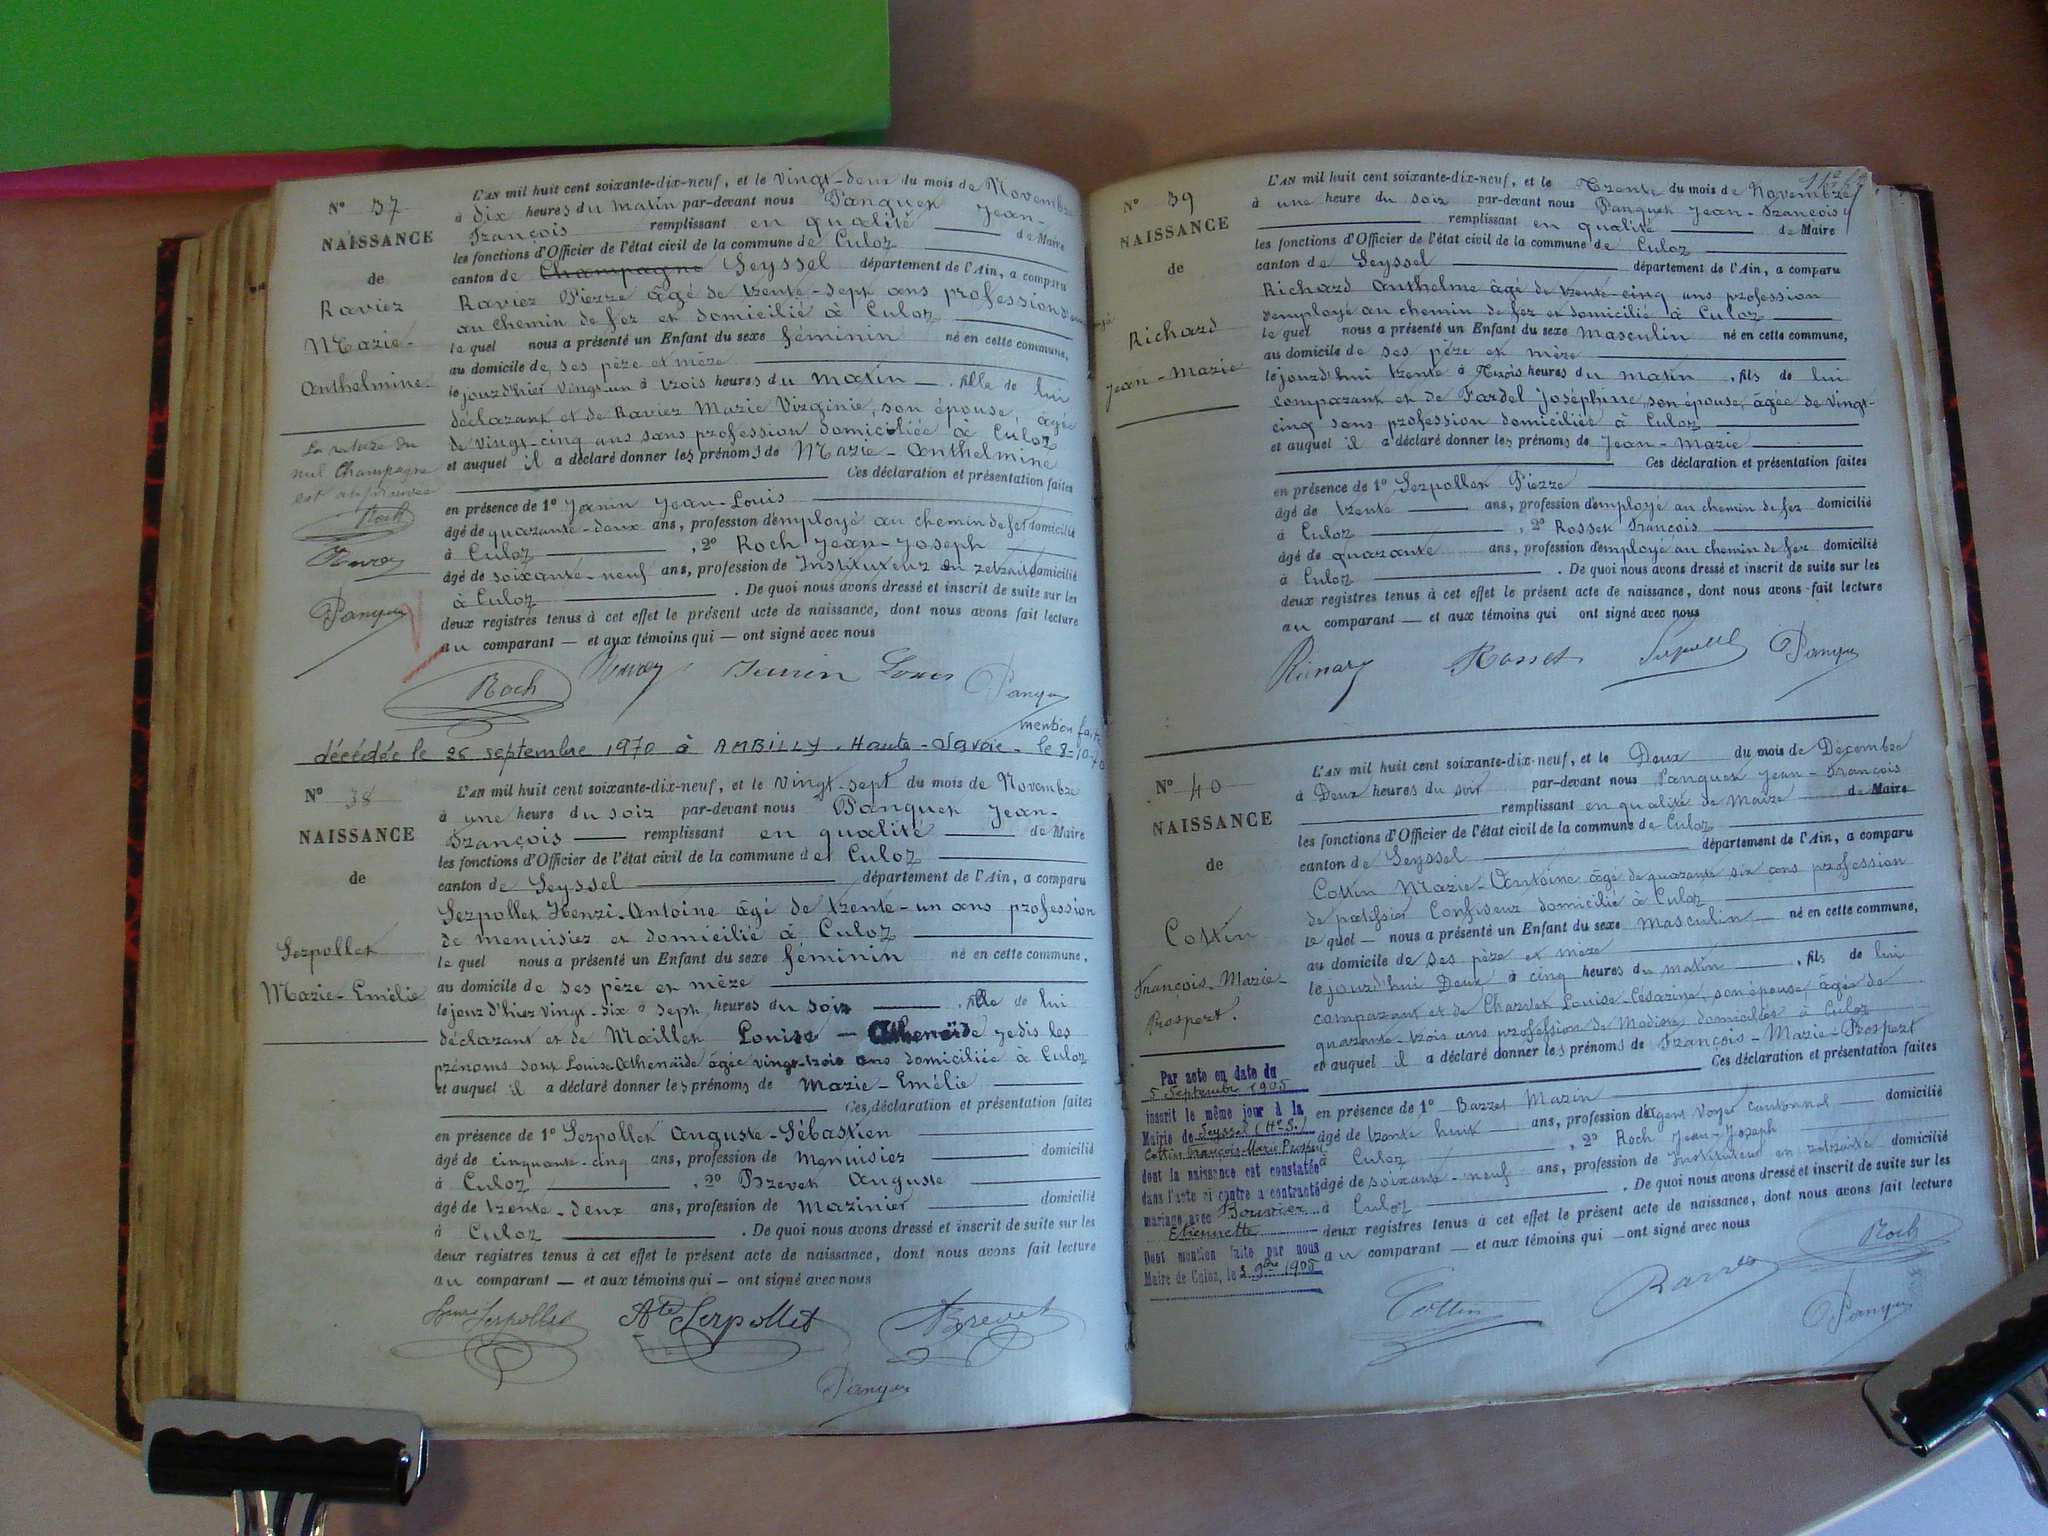 N° 37
NAISSANCE
de
Raviez
Marie-
Anthelmine
La rature du
mul Champagne
est approuvée
Roch
Panquet
L'AN mil huit cent soixante-dix-neuf, et le vingt-deux du mois de Novembre
à dix heures du matin par-devant nous Panquet Jean-
François remplissant en qualité de Maire
les fonctions d'Officier de l'état civil de la commune de Culoz
canton de Champagne Seyssel département de l'Ain, a comparu
Raviez Pierre âgé de trente-sept ans profession
au chemin de fer et domicilié à Culoz
le quel nous a présenté un Enfant du sexe féminin né en cette commune,
au domicile de ses père et mère
le jourd'hier vingt-un à trois heures du matin fille de lui
déclarant et de Raviez Marie Virginie, son épouse, âgée
de vingt-cinq ans sans profession domiciliée à Culoz
et auquel il a déclaré donner les prénoms de Marie-Anthelmine
Ces déclaration et présentation faites
en présence de 1° Janin Jean-Louis
âgé de quarante-deux ans, profession d'employé au chemin de fer domicilié
à Culoz , 2° Roch Jean-Joseph
âgé de soixante-neuf ans, profession de Instituteur en retraite domicilié
à Culoz . De quoi nous avons dressé et inscrit de suite sur les
deux registres tenus à cet effet le présent acte de naissance, dont nous avons fait lecture
au comparant — et aux témoins qui — ont signé avec nous
Roch Janin Louis Panquet
mention faite
décédée le 26 septembre 1970 à AMBILLY - Haute-Savoie - le 8-10-70
N° 38
NAISSANCE
de
Serpollet
Marie-Emélie
L'AN mil huit cent soixante-dix-neuf, et le vingt-sept du mois de Novembre
à une heure du soir par-devant nous Panquet Jean-
François remplissant en qualité de Maire
les fonctions d'Officier de l'état civil de la commune de Culoz
canton de Seyssel département de l'Ain, a comparu
Serpollet Henri-Antoine âgé de trente-un ans profession
de menuisier et domicilié à Culoz
le quel nous a présenté un Enfant du sexe féminin né en cette commune,
au domicile de ses père et mère
le jour d'hier vingt-six à sept heures du soir fille de lui
déclarant et de Maillet Louise — Athenaïde je dis les
prénoms sont Louise Athenaïde âgée vingt-trois ans domiciliée à Culoz
et auquel il a déclaré donner les prénoms de Marie-Emélie
Ces déclaration et présentation faites
en présence de 1° Serpollet Auguste-Sébastien
âgé de cinquante-cinq ans, profession de Menuisier domicilié
à Culoz , 2° Brevet Auguste
âgé de trente-deux ans, profession de Marinier domicilié
à Culoz . De quoi nous avons dressé et inscrit de suite sur les
deux registres tenus à cet effet le présent acte de naissance, dont nous avons fait lecture
au comparant — et aux témoins qui — ont signé avec nous
Serpollet Ate Serpollet Brevet
Panquet
N° 39
NAISSANCE
de
Richard
Jean-Marie
L'AN mil huit cent soixante-dix-neuf, et le Trente du mois de Novembre
à une heure du soir par-devant nous Panquet Jean-François
remplissant en qualité de Maire
les fonctions d'Officier de l'état civil de la commune de Culoz
canton de Seyssel département de l'Ain, a comparu
Richard Anthelme âgé de trente-cinq ans profession
d'employé au chemin de fer et domicilié à Culoz
le quel nous a présenté un Enfant du sexe masculin né en cette commune,
au domicile de ses père et mère
le jourd'hui trente à trois heures du matin , fils de lui
comparant et de Fardel Joséphine, son épouse, âgée de vingt-
cinq sans profession domiciliée à Culoz
et auquel il a déclaré donner les prénoms de Jean-Marie
Ces déclaration et présentation faites
en présence de 1° Serpollet Pierre
âgé de trente ans, profession d'employé au chemin de fer domicilié
à Culoz , 2° Rosset François
âgé de quarante ans, profession d'employé au chemin de fer domicilié
à Culoz . De quoi nous avons dressé et inscrit de suite sur les
deux registres tenus à cet effet le présent acte de naissance, dont nous avons fait lecture
au comparant — et aux témoins qui ont signé avec nous
Rosset Panquet
N° 40
NAISSANCE
de
Cottin
François-Marie-
Prospert.
L'AN mil huit cent soixante-dix-neuf, et le Deux du mois de Décembre
à Deux heures du soir par-devant nous Panquet Jean-François
remplissant en qualité de Maire de Maire
les fonctions d'Officier de l'état civil de la commune de Culoz
canton de Seyssel département de l'Ain, a comparu
Cottin Marie-Antoine âgé de quarante six ans profession
de patissier Confiseur domicilié à Culoz
le quel — nous a présenté un Enfant du sexe Masculin né en cette commune,
au domicile de ses père et mère
le jourd'hui Deux à cinq heures du matin , fils de lui
comparant et de Charvet Louise-Césarine, son épouse, âgée de
quarante-trois ans profession de Modiste domiciliés à Culoz
et auquel il a déclaré donner les prénoms de François-Marie-Prospert
Ces déclaration et présentation faites
en présence de 1° Barret Marin
âgé de trente huit ans, profession d'Agent Voyer cantonnal domicilié
à Culoz , 2° Roch Jean-Joseph
âgé de soixante-neuf ans, profession de Instituteur en retraite domicilié
à Culoz . De quoi nous avons dressé et inscrit de suite sur les
deux registres tenus à cet effet le présent acte de naissance, dont nous avons fait lecture
au comparant — et aux témoins qui — ont signé avec nous
Par acte en date du
5 Septembre 1905
inscrit le même jour à la
Mairie de Seyssel (Hte S.)
Cottin François-Marie Prospert
dont la naissance est constatée
dans l'acte ci contre a contracté
mariage avec Bouvier
Etiennette
Dont mention faite par nous
Maire de Culoz, le 2 9bre 1905
Cottin Barret Roch
Panquet